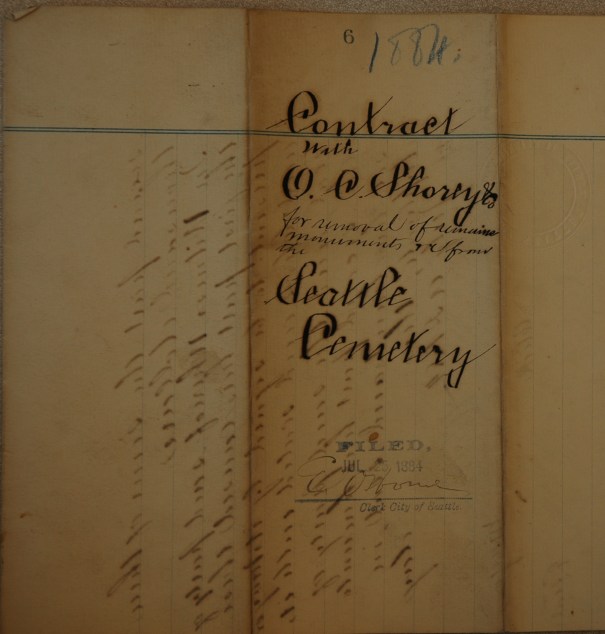 6
1884.
Contract
With
O. C. Shorey & Co
for removal of remains
monuments &c from
the
Seattle
Cemetery
FILED,
JUL 1884
Clerk City of Seattle